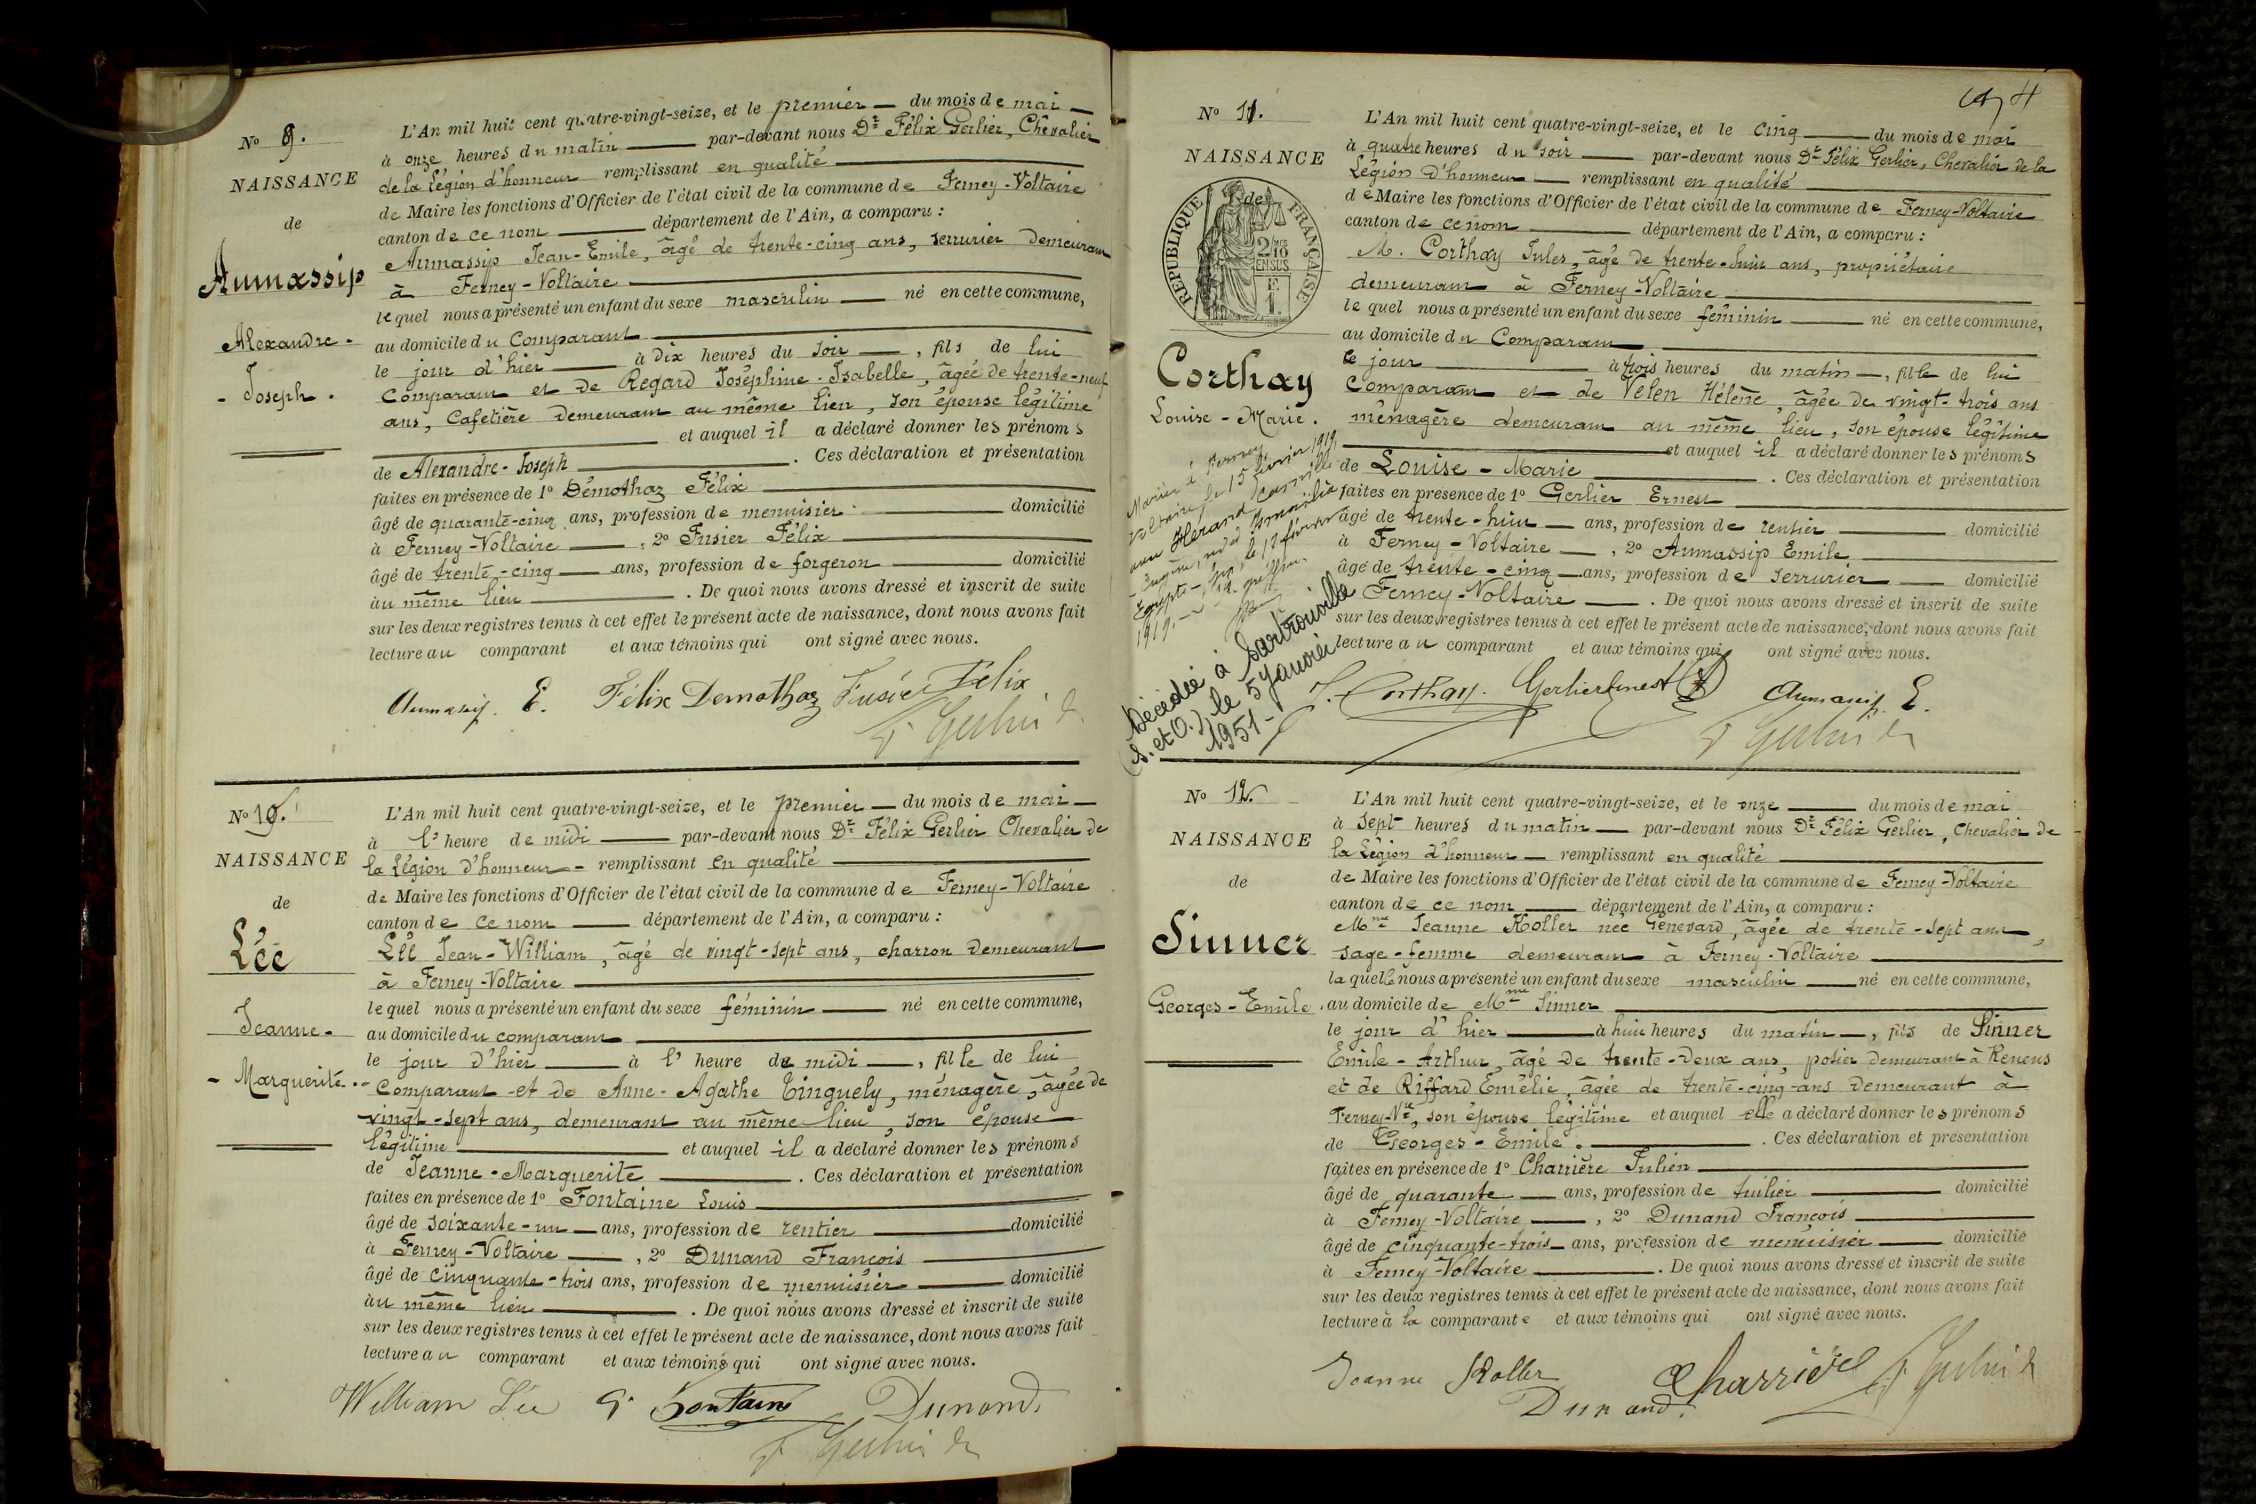 No 9.
NAISSANCE
de
Aumassip
Alexandre-
- Joseph.
L'An mil huit cent quatre-vingt-seize, et le premier du mois de mai
à onze heures du matin par-devant nous Dr Félix Gerlier, Chevalier
de la Légion d'honneur remplissant en qualité
de Maire les fonctions d'Officier de l'état civil de la commune de Ferney-Voltaire
canton de ce nom département de l'Ain, a comparu :
Aumassip Jean-Emile, âgé de trente-cinq ans, serrurier demeurant
à Ferney-Voltaire
lequel nous a présenté un enfant du sexe masculin né en cette commune,
au domicile du Comparant
le jour d'hier à dix heures du soir, fils de lui
Comparant et de Regard Joséphine-Isabelle, âgée de trente-neuf
ans, Cafetière demeurant au même lieu, son épouse légitime
et auquel il a déclaré donner les prénoms
de Alexandre-Joseph. Ces déclaration et présentation
faites en présence de 1o Démothaz Félix
âgé de quarante-cinq ans, profession de menuisier domicilié
à Ferney-Voltaire, 2o Fusier Félix
âgé de trente-cinq ans, profession de forgeron domicilié
au même lieu. De quoi nous avons dressé et inscrit de suite
sur les deux registres tenus à cet effet le présent acte de naissance, dont nous avons fait
lecture au comparant et aux témoins qui ont signé avec nous.
Aumassip. E. Félix Demothaz Fusier Félix
F Gerlier Dr
No 10.
NAISSANCE
de
Lée
Jeanne-
- Marguerite.
L'An mil huit cent quatre-vingt-seize, et le premier du mois de mai
à l'heure de midi par-devant nous Dr Félix Gerlier Chevalier de
la Légion d'honneur - remplissant en qualité
de Maire les fonctions d'Officier de l'état civil de la commune de Ferney-Voltaire
canton de ce nom département de l'Ain, a comparu :
Lée Jean-William, âgé de vingt-sept ans, charron demeurant
à Ferney-Voltaire
lequel nous a présenté un enfant du sexe féminin né en cette commune,
au domicile du comparant
le jour d'hier à l'heure de midi, fille de lui
Comparant et de Anne-Agathe Tinguely, ménagère, âgée de
vingt-sept ans, demeurant au même lieu, son épouse
légitime et auquel il a déclaré donner les prénoms
de Jeanne-Marguerite. Ces déclaration et présentation
faites en présence de 1o Fontaine Louis
âgé de soixante-un ans, profession de rentier domicilié
à Ferney-Voltaire, 2o Dunand François
âgé de cinquante-trois ans, profession de menuisier domicilié
au même lieu. De quoi nous avons dressé et inscrit de suite
sur les deux registres tenus à cet effet le présent acte de naissance, dont nous avons fait
lecture au comparant et aux témoins qui ont signé avec nous.
William Lée Fontaine Dunand
F Gerlier Dr
4
No 11.
NAISSANCE
de
RÉPUBLIQUE FRANÇAISE
2/10
EN SUS
F.
1.
Corthay
Louise-Marie.
Marié à Ferney
Voltaire, le 15 février 1919.
avec Hérand
Eugène, né à Ismaïlia
Egypte
1919.
Décédée à Sartrouville
(S. et O.) le 5 janvier
1951-
L'An mil huit cent quatre-vingt-seize, et le cinq du mois de mai
à quatre heures du soir par-devant nous Dr Félix Gerlier, Chevalier de la
Légion d'honneur remplissant en qualité
de Maire les fonctions d'Officier de l'état civil de la commune de Ferney-Voltaire
canton de ce nom département de l'Ain, a comparu :
M. Corthay Jules, âgé de trente-huit ans, propriétaire
demeurant à Ferney-Voltaire
lequel nous a présenté un enfant du sexe féminin né en cette commune,
au domicile du Comparant
ce jour à trois heures du matin, fille de lui
Comparant et de Velen Hélène, âgée de vingt-trois ans
ménagère demeurant au même lieu, son épouse légitime
et auquel il a déclaré donner les prénoms
de Louise-Marie. Ces déclaration et présentation
faites en présence de 1o Gerlier Ernest
âgé de trente-huit ans, profession de rentier domicilié
à Ferney-Voltaire, 2o Aumassip Emile
âgé de trente-cinq ans, profession de serrurier domicilié
Ferney-Voltaire. De quoi nous avons dressé et inscrit de suite
sur les deux registres tenus à cet effet le présent acte de naissance, dont nous avons fait
lecture au comparant et aux témoins qui ont signé avec nous.
J. Corthay. Gerlier Ernest Aumassip. E.
F Gerlier Dr
No 12.
NAISSANCE
de
Sinner
Georges-Emile.
L'An mil huit cent quatre-vingt-seize, et le onze du mois de mai
à sept heures du matin par-devant nous Dr Félix Gerlier, Chevalier de
la Légion d'honneur remplissant en qualité
de Maire les fonctions d'Officier de l'état civil de la commune de Ferney-Voltaire
canton de ce nom département de l'Ain, a comparu :
Mme Jeanne Koller née Génevard, âgée de trente-sept ans,
sage-femme demeurant à Ferney-Voltaire
laquelle nous a présenté un enfant du sexe masculin né en cette commune,
au domicile de Mme Sinner
le jour d'hier à huit heures du matin, fils de Sinner
Emile-Arthur, âgé de trente-deux ans, potier demeurant à Renens
et de Riffard Emélie, âgée de trente-cinq-ans demeurant à
Ferney-Vre, son épouse légitime et auquel elle a déclaré donner les prénoms
de Georges-Emile. Ces déclaration et présentation
faites en présence de 1o Charrière Julien
âgé de quarante ans, profession de tuilier domicilié
à Ferney-Voltaire, 2o Dunand François
âgé de cinquante-trois ans, profession de menuisier domicilié
à Ferney-Voltaire. De quoi nous avons dressé et inscrit de suite
sur les deux registres tenus à cet effet le présent acte de naissance, dont nous avons fait
lecture à la comparante et aux témoins qui ont signé avec nous.
Jeanne Koller Charrière F Gerlier Dr
Dunand.